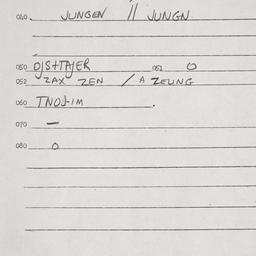 040 JUNGEN // JUNGN
050 OJS+TAJER 051 O
052 ZAX ZEN / A ZEUNG
060 TNOJ-IM .
070 —
080 O